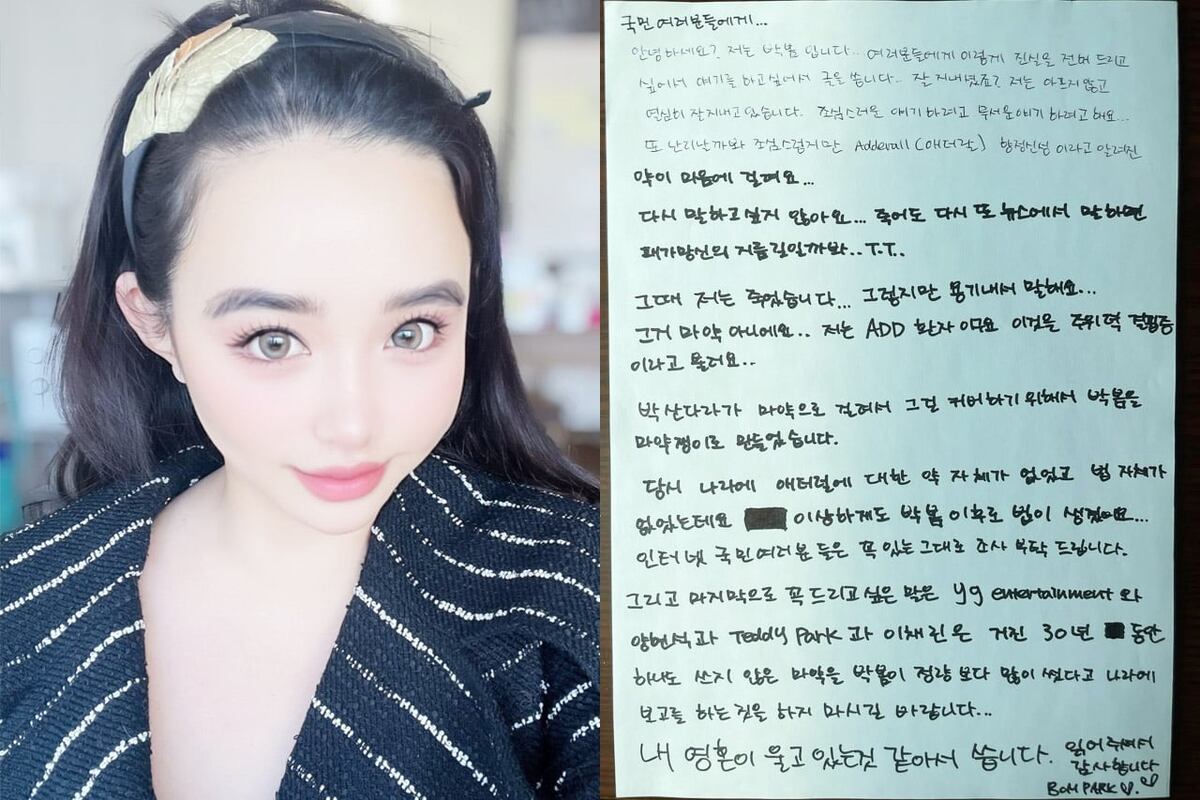 국민 여러분들에게...
안녕하세요? 저는 박봄 입니다.. 여러분들에게 이렇게 진실을 전해 드리고
싶어서 얘기를 하고싶어서 글을 씁니다.. 잘 지내셨죠? 저는 아프지 않고
열심히 잘지내고 있습니다. 조심스러운 얘기 하려고 무서운얘기 하려고 해요...
또 난리날까봐 조심스럽지만 Adderall (애더럴) 향정신성 이라고 알려진
약이 마음에 걸려요...
다시 말하고싶지 않아요... 죽어도 다시 또 뉴스에서 말하면
패가망신의 지름길일까봐.. T.T..
그때 저는 죽었습니다... 그렇지만 용기내서 말해요...
그거 마약 아니에요.. 저는 ADD 환자 이구요 이것은 주위력 결핍증
이라고 불려요..
박산다라가 마약으로 걸려서 그걸 커버하기 위해서 박봄을
마약쟁이로 만들었습니다.
당시 나라에 애더럴에 대한 약 자체가 없었고 법 자체가
없었는데요 이상하게도 박봄 이후로 법이 생겼어요...
인터넷 국민여러분 들은 꼭 있는 그대로 조사 부탁 드립니다.
그리고 마지막으로 꼭 드리고 싶은 말은 yg entertainment 와
양현석과 Teddy Park 과 이채린 은 거진 30년 동안
하나도 쓰지 않은 마약을 박봄이 정량 보다 많이 썼다고 나라에
보고를 하는것을 하지 마시길 바랍니다...
내 영혼이 울고 있는것 같아서 씁니다. 읽어 주셔서
감사합니다
BOM PARK ♡. ♡